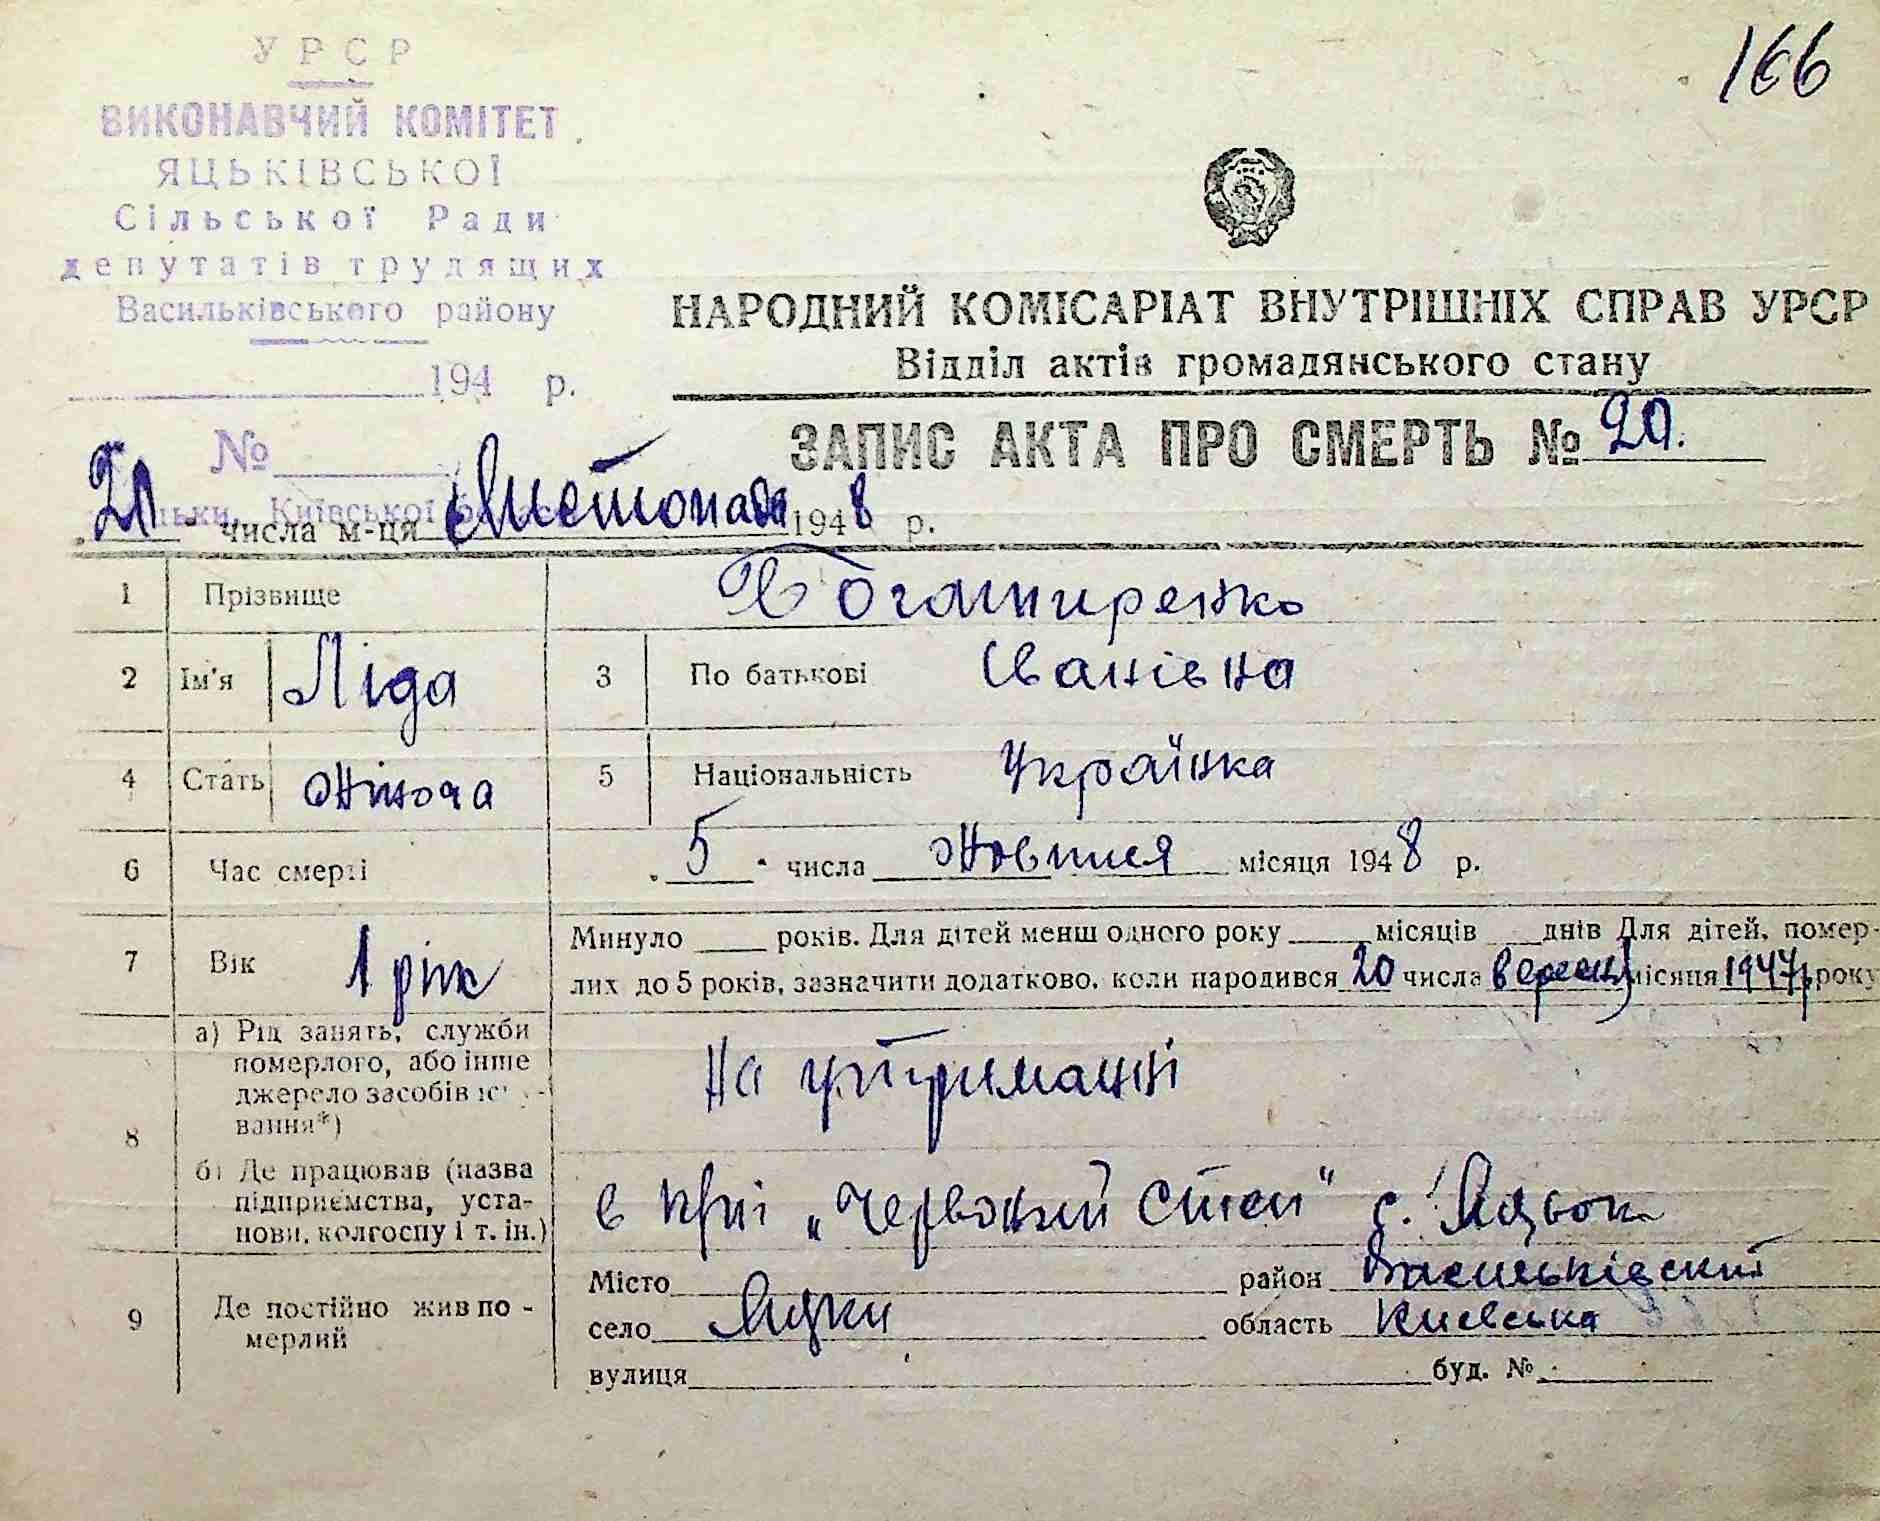 166
УРСР
ВИКОНАВЧИЙ КОМІТЕТ
ЯЦЬКІВСЬКОЇ
Сільської Ради
депутатів трудящих
Васильківського району
194 р.
№
НАРОДНИЙ КОМІСАРІАТ ВНУТРІШНІХ СПРАВ УРСР
Відділ актів громадянського стану
ЗАПИС АКТА ПРО СМЕРТЬ № 20.
20 числа м-ця Листопада 1948 р.
1 Прізвище Богатиренко
2 Ім'я Ліда 3 По батькові Іванівна
4 Стать Жіноча 5 Національність Українка
6 Час смерті „5" числа Жовтня місяця 1948 р.
7 Вік 1 рік Минуло ____ років. Для дітей менш одного року ____ місяців ___ днів Для дітей, помер-
лих до 5 років, зазначити додатково, коли народився 20 числа вересня місяця 1947р року
8 а) Рід занять, служби
померлого, або інше
джерело засобів існу-
вання*)
На утриманні
б) Де працював (назва
підприємства, уста-
нови, колгоспу і т. ін.)
в к-пі „Червоний степ" с. Яцьок
9 Де постійно жив по-
мерлий
Місто район Васильківский
село Яцки область Киевська
вулиця буд. №